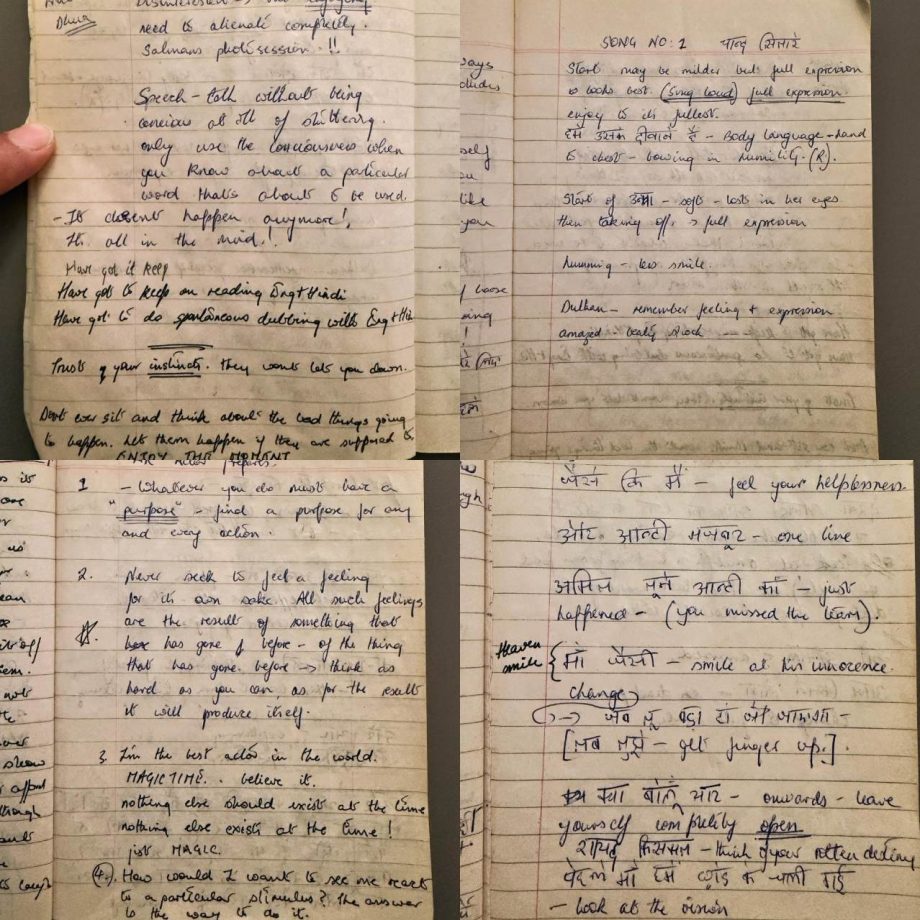 need to alienate completely.
Salmans photosession. !!
Speech - talk without being
concious at all of stuttering.
only use the consciousness when
you know about a particular
word that's about to be used.
- It doesent happen anymore!
Its all in the mind!!
Have got it keep
Have got to keep on reading Eng + Hindi
Have got to do spontaneous dubbing with Eng +
Trust your instincts. they wont let you down.
Dont ever sit and think about the bad things going
to happen. Let them happen if they are supposed to
ENJOY THE MOMENT
SONG NO: 1 चान्द सितारे
Start may be milder but full expression
looks best. (Sing loud) full expression
enjoy to its fullest.
हम उसके दीवाने है - Body language - hand
to chest - bowing in humility. (R).
Start of - soft - lost in her eyes
then taking off. full expression
humming - less smile.
Dulhan - remember feeling + expression
amazed - shock
1 - Whatever you do must have a
"purpose" - find a purpose for any
and every action.
2. Never seek to feel a feeling
for its own sake. All such feelings
are the result of something that
has gone before - of the thing
that has gone before → think as
hard as you can, as for the result
it will produce itself.
3. Im the best actor in the world.
MAGIC TIME. believe it.
nothing else should exist at the time
nothing else exists at the time!
just MAGIC.
(4.) How would I want to see me react
to a particular stimulus? the answer
is the way to do it.
जैसे कि मैं - feel your helplessness
और आन्टी मजबूर - one line
अमिल तूने आन्टी को - just
happened - (you missed the team).
Heaven
smile { माँ जैसी - smile at his innocence.
change
→ जब तू बड़ा हो जायेगा -
[तब तुझे - get finger up.].
क्या बोलूँ यार - onwards - leave
yourself completely open
शायद किसमत - think of your rotten destiny
पहले माँ हमें छोड़ के चली गई
- look at the vision